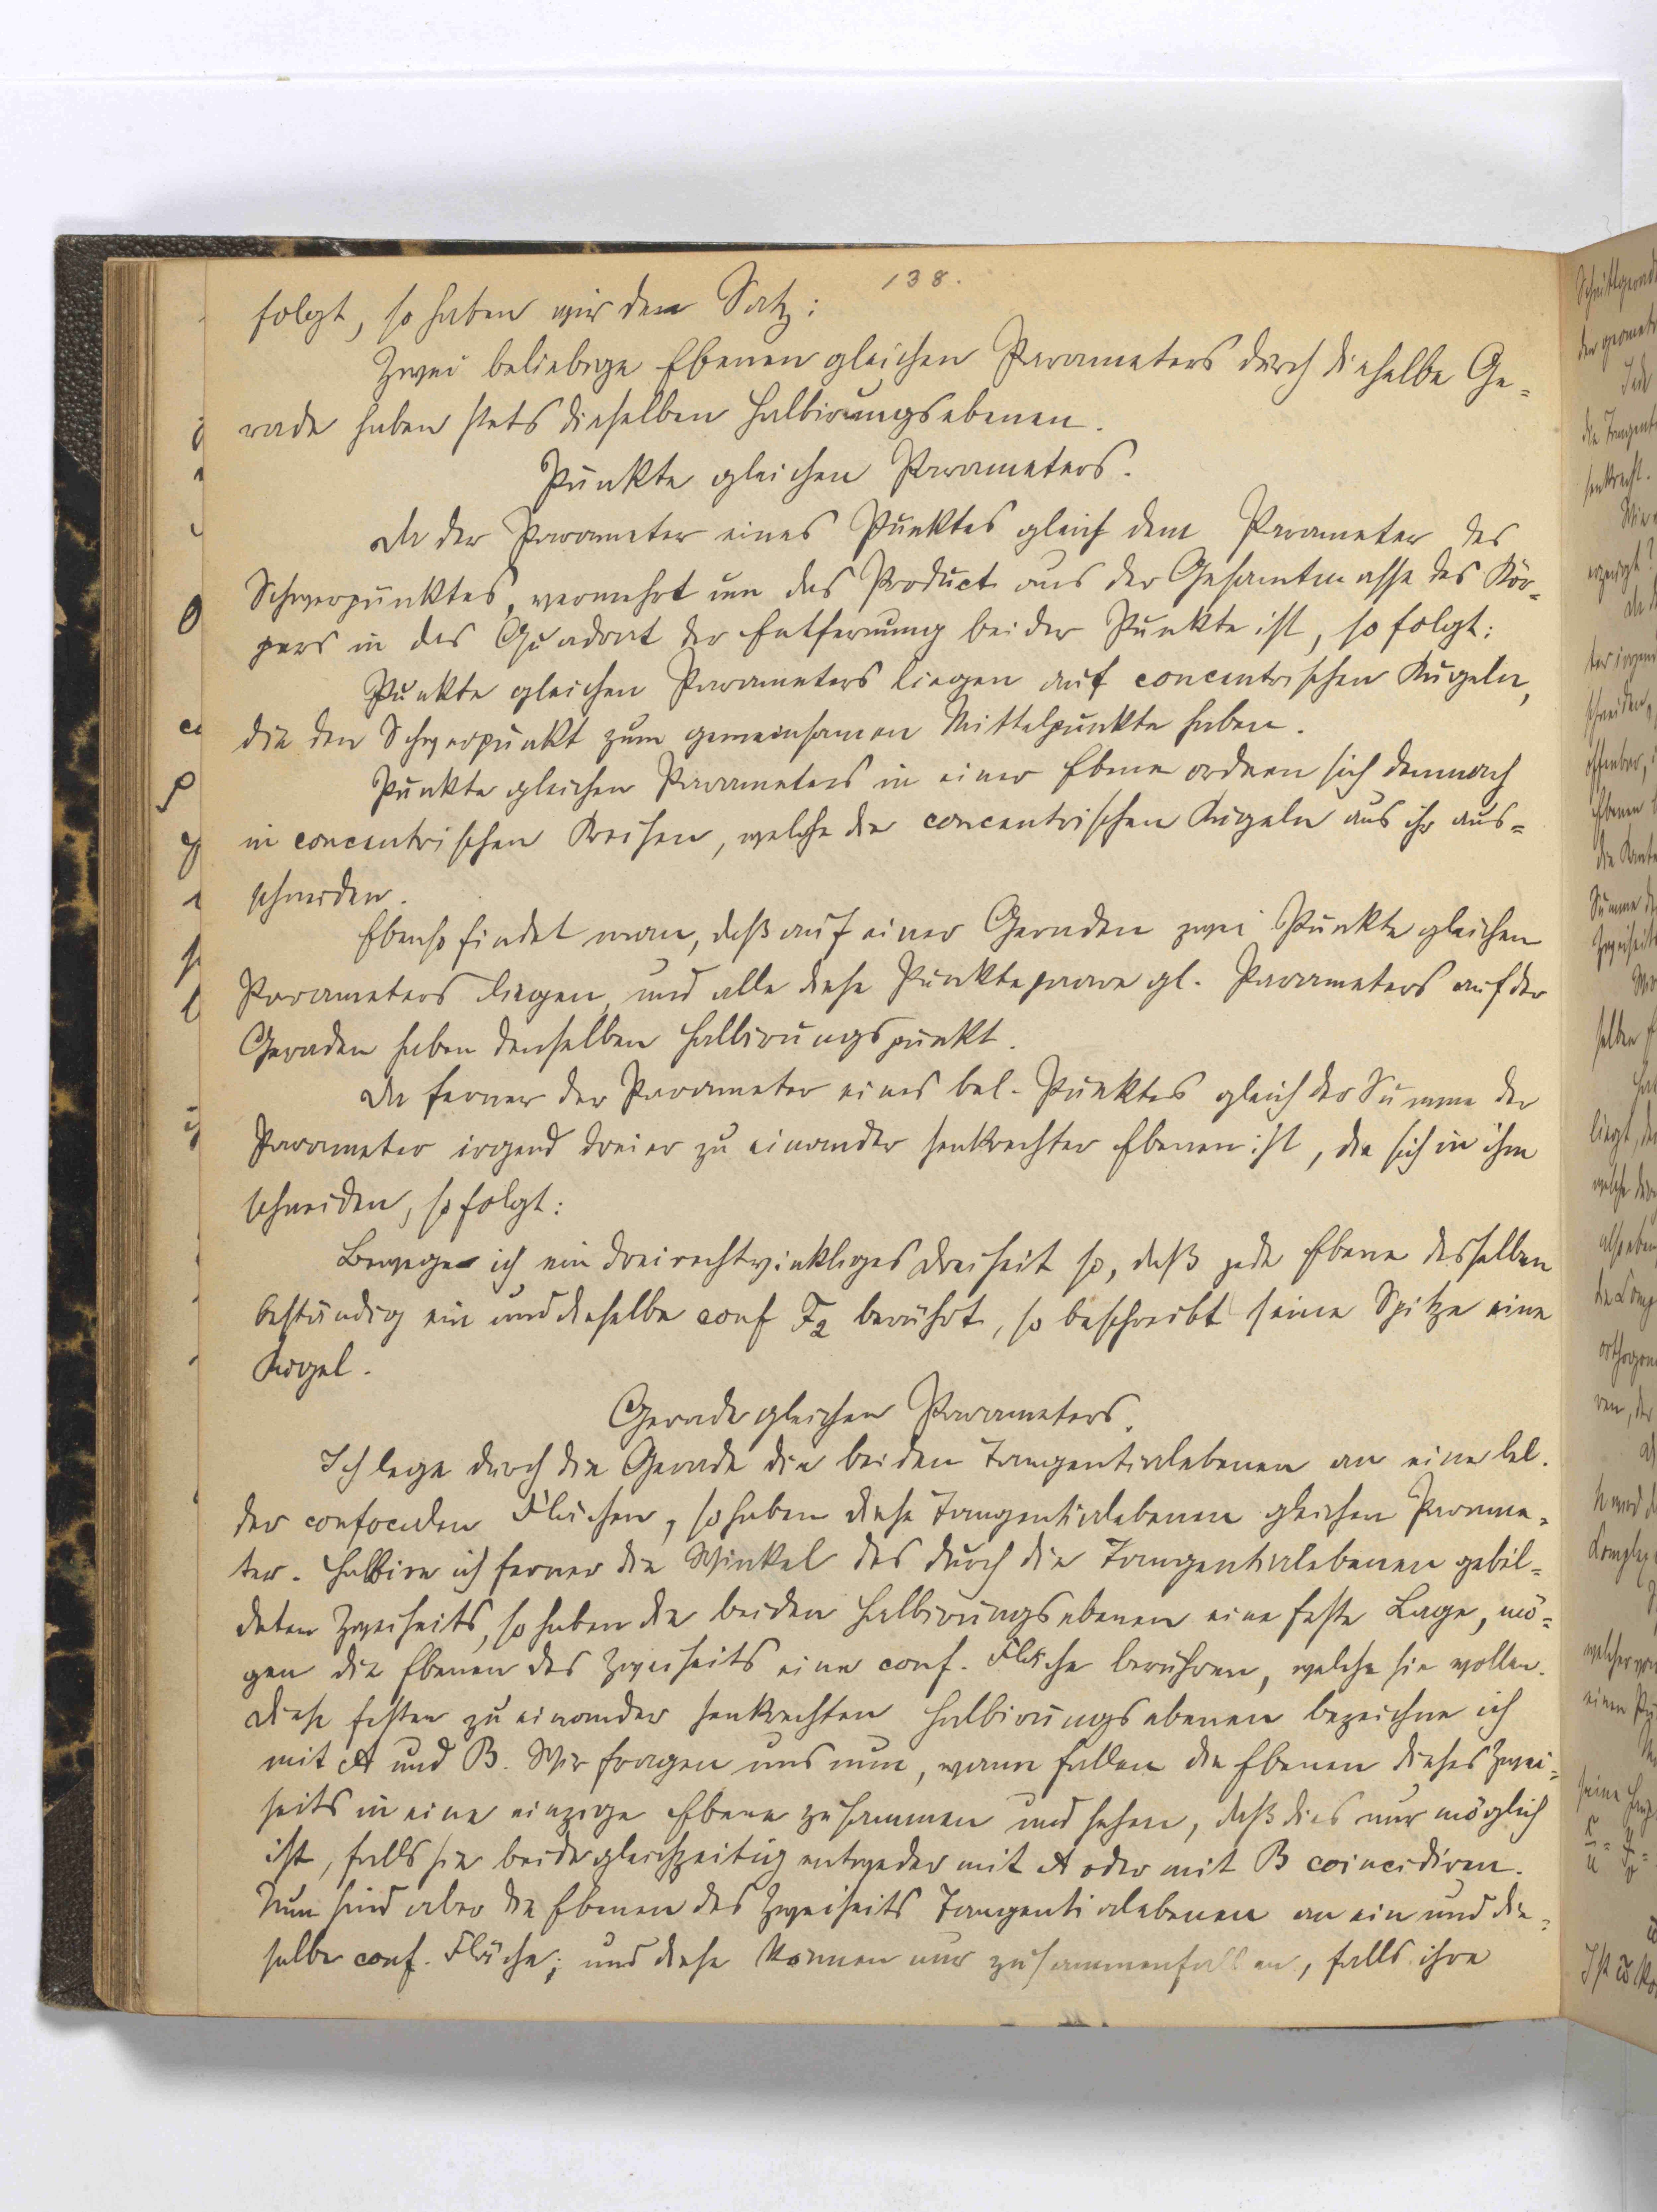 138.
folgt, so haben wir den Satz:
Zwei beliebige Ebenen gleichen Parameters durch dieselbe Ge-
rade haben stets dieselben Halbirungsebenen.
Punkte gleichen Parameters.
Da der Parameter eines Punktes gleich dem Parameter des
Schwerpunktes, vermehrt um das Product aus der Gesamtmasse des Kör-
pers in das Quadrat der Entfernung beider Punkte ist, so folgt:
Punkte gleichen Parameters liegen auf concentrischen Kugeln,
die den Schwerpunkt zum gemeinsamen Mittelpunkte haben.
Punkte gleichen Parameters in einer Ebene ordnen sich demnach
in concentrischen Kreisen, welche die concentrischen Kugeln aus ihr aus=
schneiden.
Ebenso findet man, daß auf einer Geraden zwei Punkte gleichen
Parameters liegen, und alle diese Punktepaare gl. Parameters auf der
Geraden haben denselben Halbirungspunkt.
Da ferner der Parameter eines bel. Punktes gleich der Summe der
Parameter irgend dreier zu einander senkrechter Ebenen ist, die sich in ihm
schneiden, so folgt:
Bewege ich ein dreirechtwinkliges Dreiseit so, daß jede Ebene desselben
beständig ein und dieselbe conf F2 berührt, so beschreibt seine Spitze eine
Kugel.
Gerade gleichen Parameters.
Ich lege durch die Gerade die beiden Tangentialebenen an eine bel.
der confocalen Flächen, so haben diese Tangentialebenen gleichen Parame-
ter. Halbire ich ferner die Winkel des durch die Tangentialebenen gebil=
deten Zweiseits, so haben die beiden Halbirungsebenen eine feste Lage, mö=
gen die Ebenen des Zweiseits eine conf. Fläche berühren, welche sie wollen.
Diese festen zu einander senkrechten Halbirungsebenen bezeichne ich
mit A und B. Wir fragen uns nun, wann fallen die Ebenen dieses Zwei=
seits in eine einzige Ebene zusammen und sehen, daß dies nur möglich
ist, falls sie beide gleichzeitig entweder mit A oder mit B coincidiren.
Nun sind aber die Ebenen des Zweiseits Tangentialebenen an ein und die=
selbe conf. Fläche; und diese können nur zusammenfallen, falls ihre